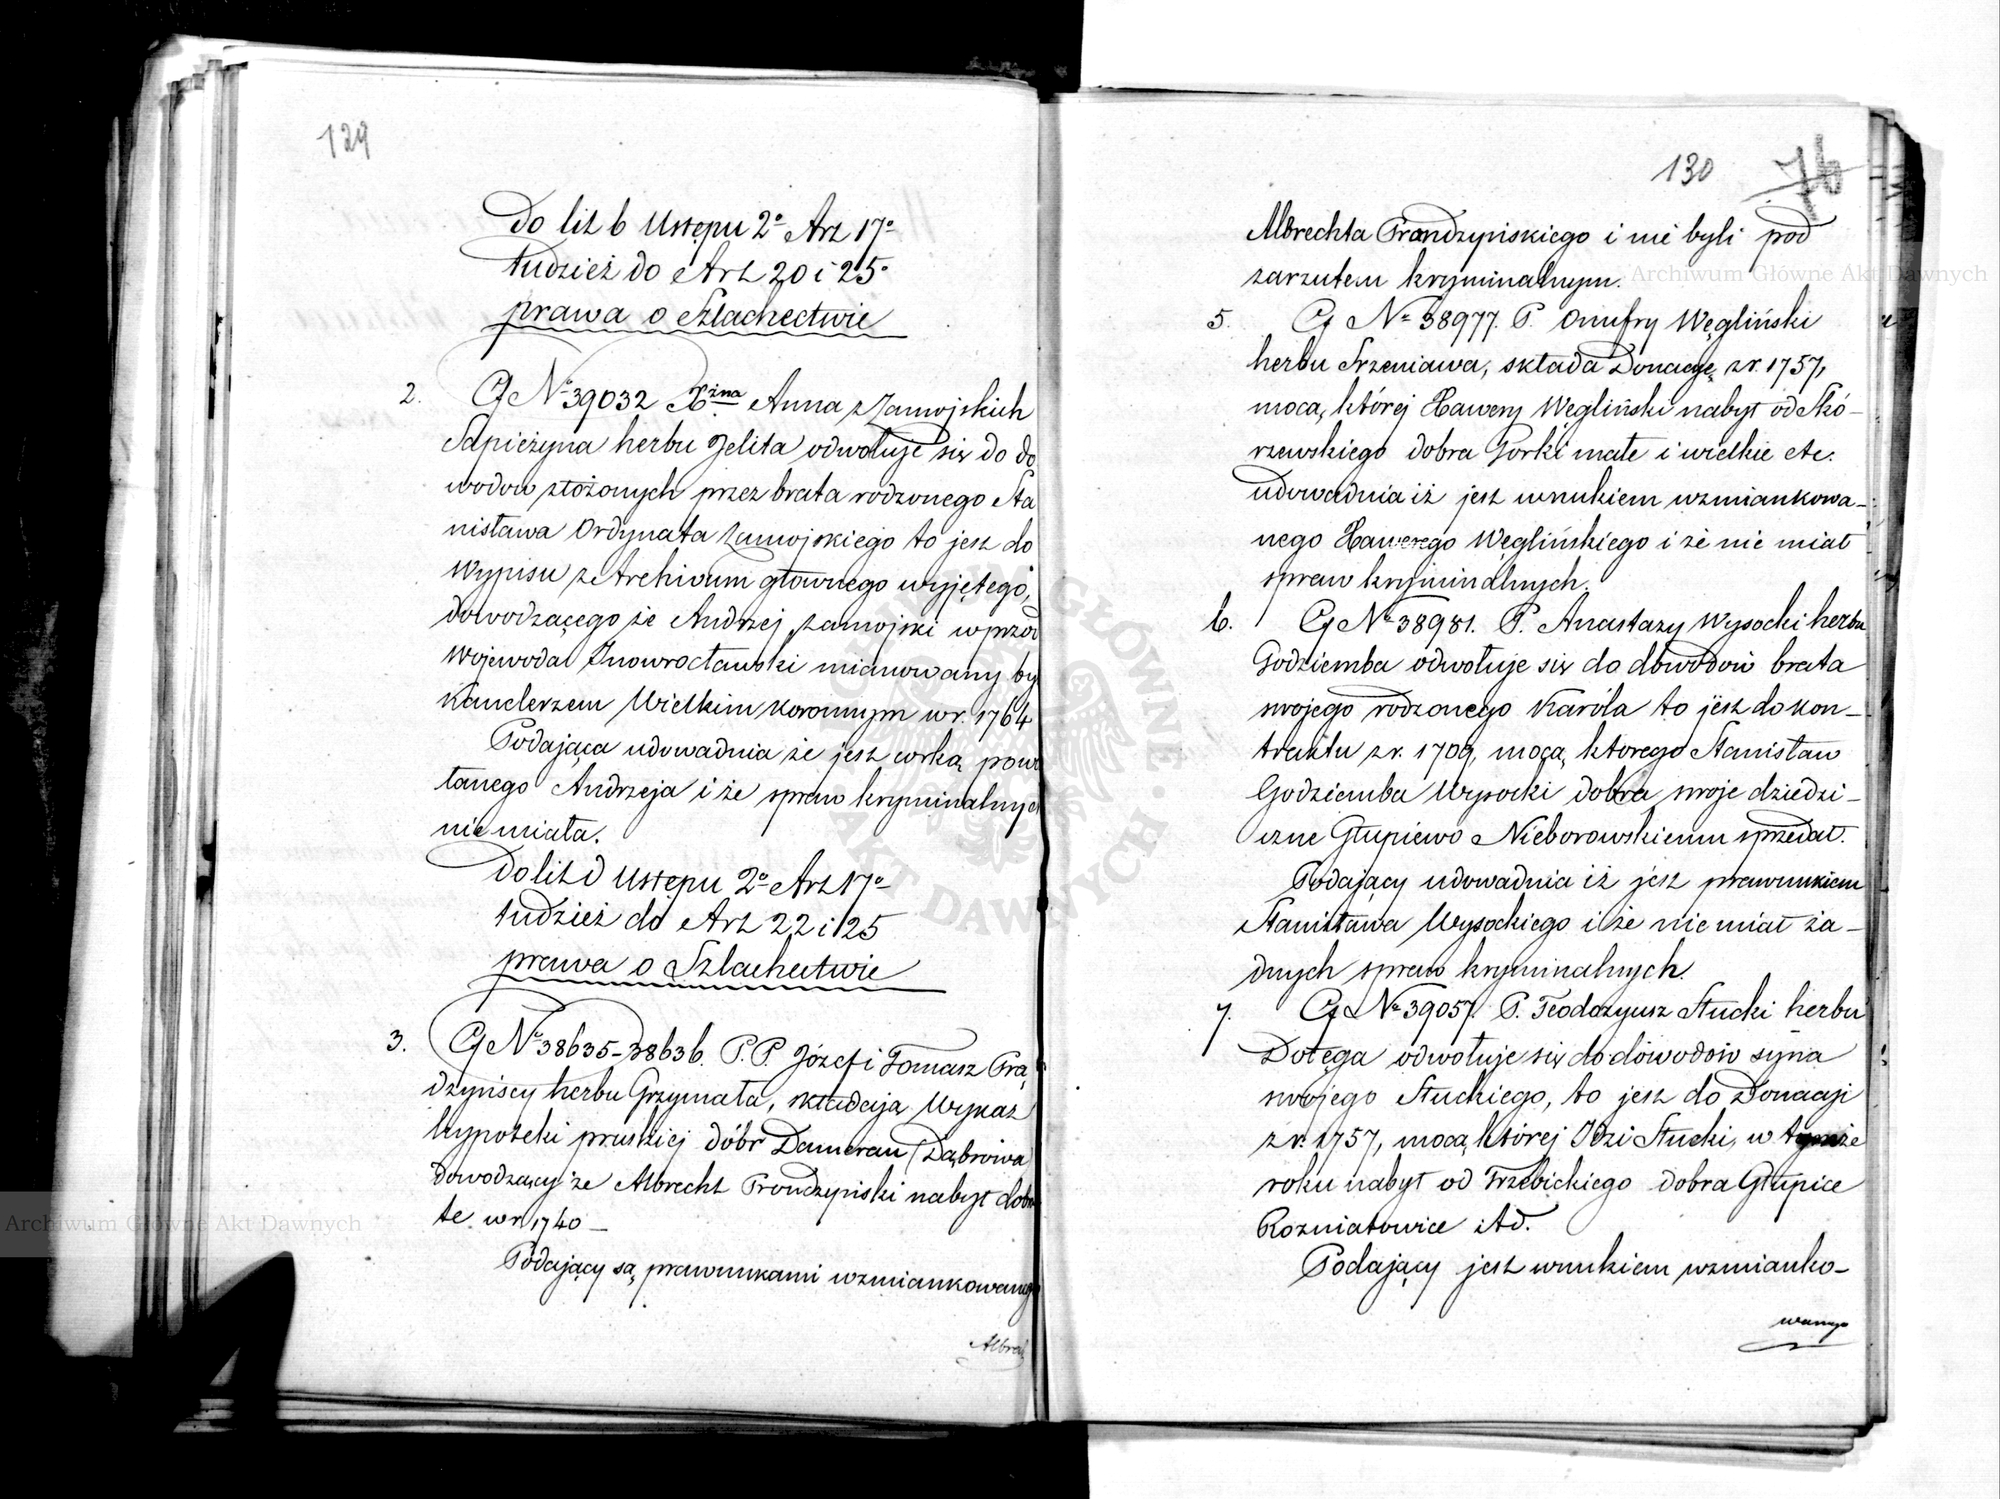 129
Do lit b Ustępu 2° Art 17°
tudzież do Art 20 i 25°
prawa o Szlachectwie
2. Cj N° 39032 Xżna Anna z Zamojskich
Sapieżyna herbu Jelita odwołuje się do do
wodow złożonych przez brata rodzonego Sta
nisława Ordynata Zamojskiego to jest do
Wypisu ze Archivum głownego wyjętego,
dowodzącego że Andrzej Zamojski wprzod
Wojewoda Inowrocławski mianowany by
Kanclerzem Wielkim Koronnym w r. 1764
Podająca udowadnia że jest corką powo
łanego Andrzeja i że spraw kryminalnych
nie miała.
Do lit d Ustępu 2° Art 17°
tudzież do Art 22 i 25
prawa o Szlachectwie
3. Cj N° 38635-38636. P.P. Józef i Tomasz Prą
dzyńscy herbu Grzymała, składają Wykaz
hypoteki pruskiej dóbr Damerau (Dąbrowa)
dowodzący że Albrecht Prondzynski nabył dobra
te w r. 1740 –
Podający są prawnukami wzmiankowanego
Albrech
130
76
Albrechta Prondzynskiego i nie byli pod
zarzutem kryminalnym.
5. Cj N° 38977. P. Onufry Węgliński
herbu Srzeniawa, składa Donacyę z r. 1757,
mocą, której Xawery Węgliński nabył od Skó-
rzewskiego dobra Gorki małe i wielkie etc.
udowadnia iż jest wnukiem wzmiankowa-
nego Xawerego Węglińskiego i że nie miał
spraw kryminalnych.
6. Cj N° 38981. P. Anastazy Wysocki herbu
Godziemba odwołuje się do dowodow brata
swojego rodzonego Karóla to jest do kon-
traktu z r. 1709, mocą, ktorego Stanisław
Godziemba Wysocki dobra swoje dziedzi-
czne Głupiewo Nieborowskiemu sprzedał.
Podający udowadnia iż jest prawnukiem
Stanisława Wysockiego i że nie miał ża-
dnych spraw kryminalnych.
7. Cj N° 39057. P. Teodozyusz Stucki herbu
Dołęga odwołuje się do dowodow syna
swojego Stuckiego, to jest do Donacyi
z r. 1757, mocą, której Idzi Stucki, w tymże
roku nabył od Trzebickiego dobra Głupice
Rozniatowice itd.
Podający jest wnukiem wzmianko-
wanego
Archiwum Główne Akt Dawnych
Archiwum Główne Akt Dawnych
ARCHIWUM GŁÓWNE AKT DAWNYCH